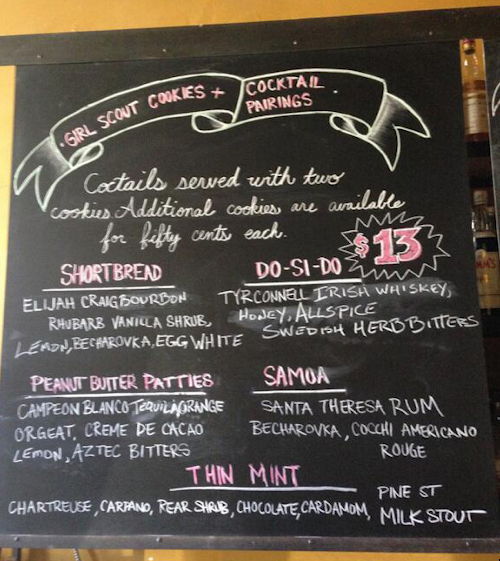 GIRL SCOUT COOKIES + COCKTAIL PAIRINGS
Coctails served with two
cookies. Additional cookies are available
for fifty cents each.
$13
SHORTBREAD
ELIJAH CRAIG BOURBON
RHUBARB VANILLA SHRUB,
LEMON, BECHAROVKA, EGG WHITE
DO-SI-DO
TYRCONNELL IRISH WHISKEY,
HONEY, ALLSPICE
SWEDISH HERB BITTERS
PEANUT BUTTER PATTIES
CAMPEON BLANCO TEQUILA, ORANGE
ORGEAT, CREME DE CACAO
LEMON, AZTEC BITTERS
SAMOA
SANTA THERESA RUM
BECHAROVKA, COCCHI AMERICANO
ROUGE
THIN MINT
CHARTREUSE, CARPANO, PEAR SHRUB, CHOCOLATE, CARDAMOM, PINE ST
MILK STOUT